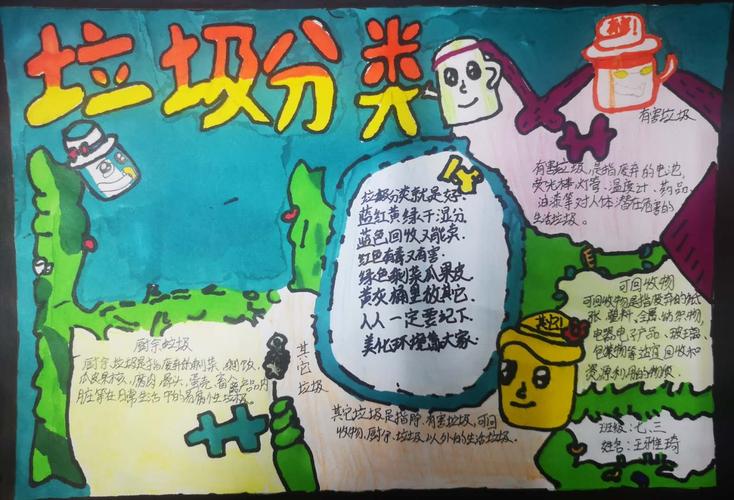 垃圾分类
有害垃圾
有害垃圾是指废弃的电池,
荧光棒灯管、温度计、药品、
油漆等对人体潜在危害的
生活垃圾。
垃圾分类就是好.
蓝红黄绿干湿分
蓝色回收又能卖.
红色有毒又有害.
绿色剩菜瓜果皮
黄灰桶里放其它.
人人一定要记下.
美化环境靠大家.
可回收物
可回收物是指废弃的纸
张、塑料、金属、纺织物,
电器电子产品、玻璃、
包装物等适宜回收和
资源利用的物质.
其它
厨余垃圾
厨余垃圾是指废弃的剩菜、剩饭、
瓜皮果核、腐肉、骨头、蛋壳、畜禽产品内
脏等在日常生活中的易腐性垃圾.
其它
垃圾
其它垃圾是指除.有害垃圾,可回
收物.厨余.垃圾以外的生活垃圾.
班级:七.三
姓名:王雅琦